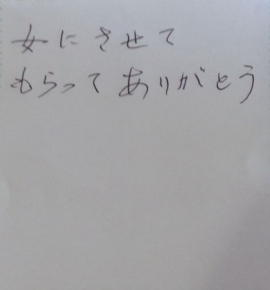 女にさせて
もらってありがとう